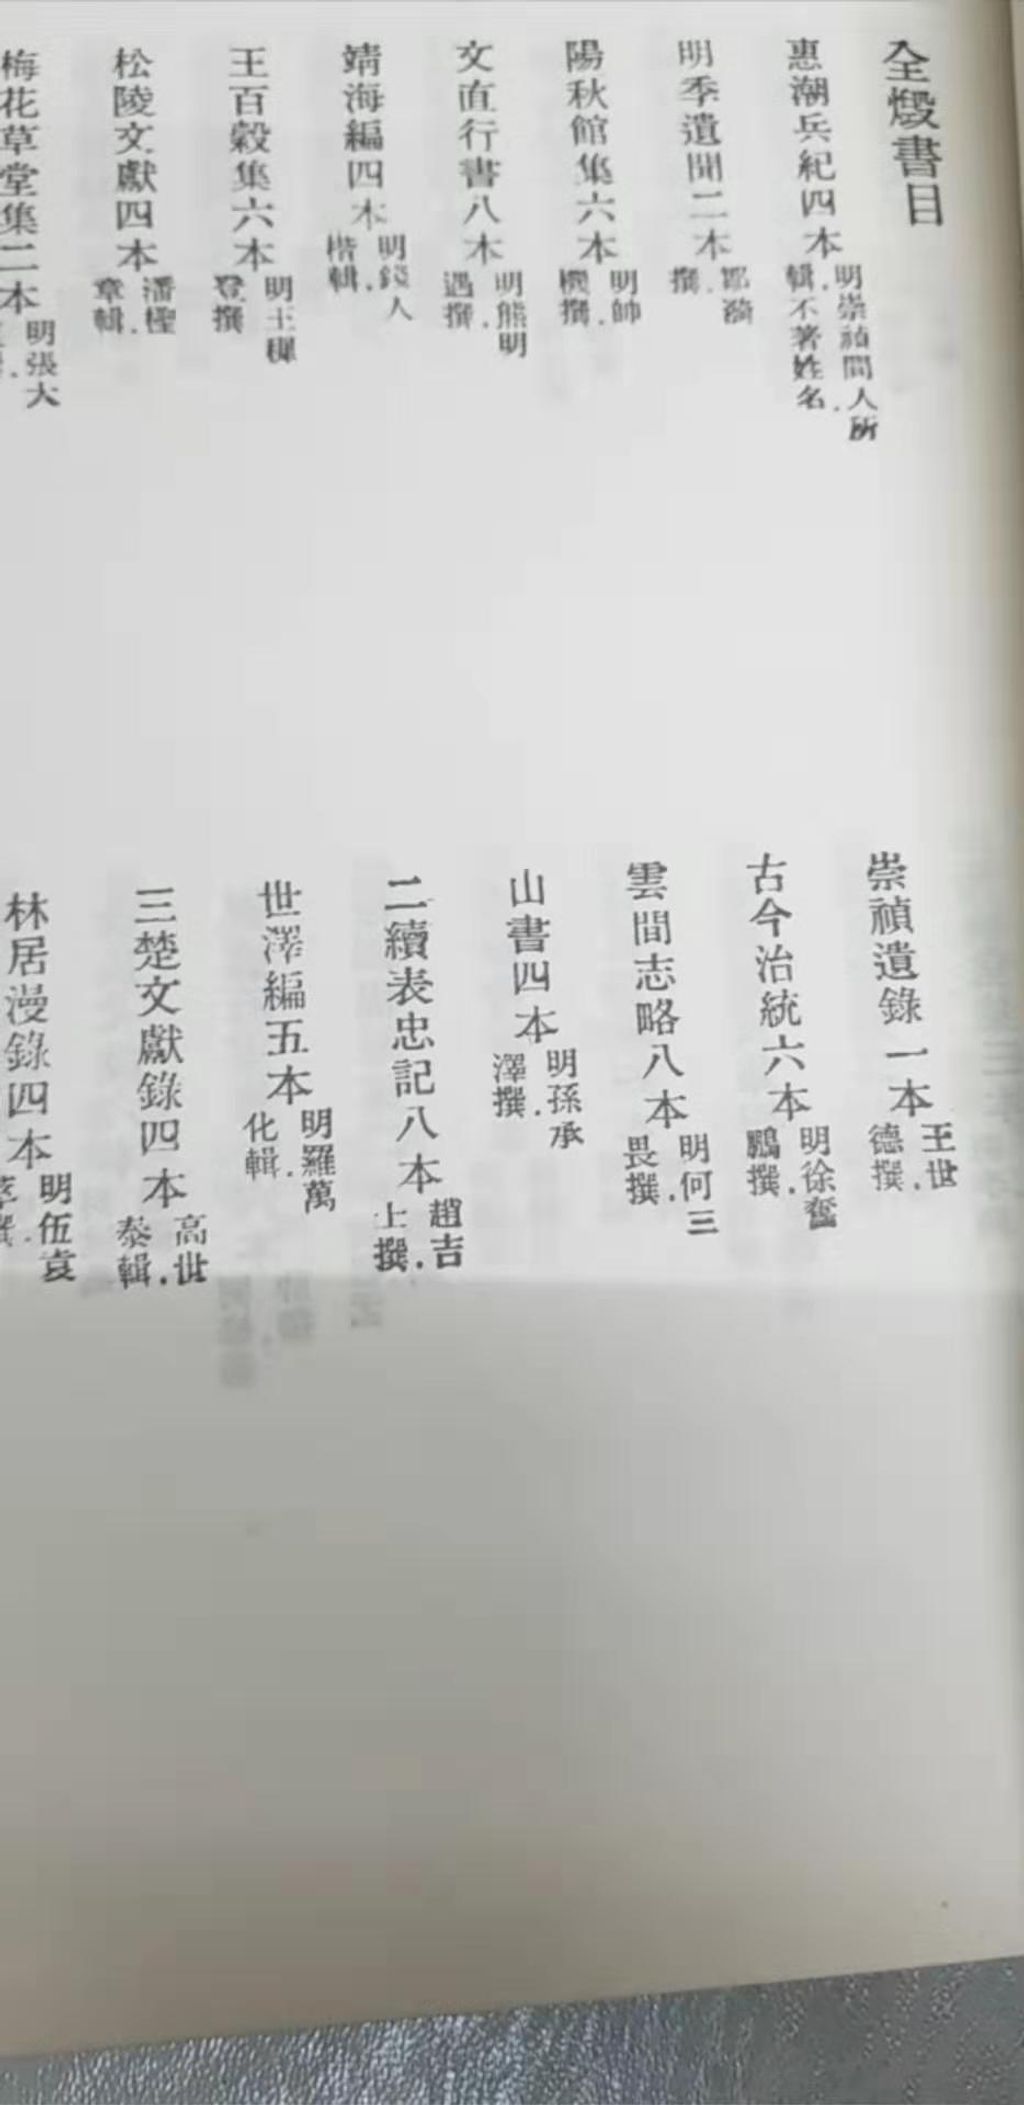 全燬書目
惠潮兵紀四本
明崇禎間人所
輯.不著姓名.
崇禎遺錄一本
王世
德撰.
明季遺聞二本
鄒漪
撰.
古今治統六本
明徐奮
鵬撰.
陽秋館集六本
明帥
機撰.
雲間志略八本
明何三
畏撰.
文直行書八本
明熊明
遇撰.
山書四本
明孫承
澤撰.
靖海編四本
明錢人
楷輯.
二續表忠記八本
趙吉
士撰.
王百穀集六本
明王穉
登撰
世澤編五本
明羅萬
化輯.
松陵文獻四本
潘檉
章輯.
三楚文獻錄四本
高世
泰輯.
梅花草堂集二本
明張大
林居漫錄四本
明伍袁
萃撰.